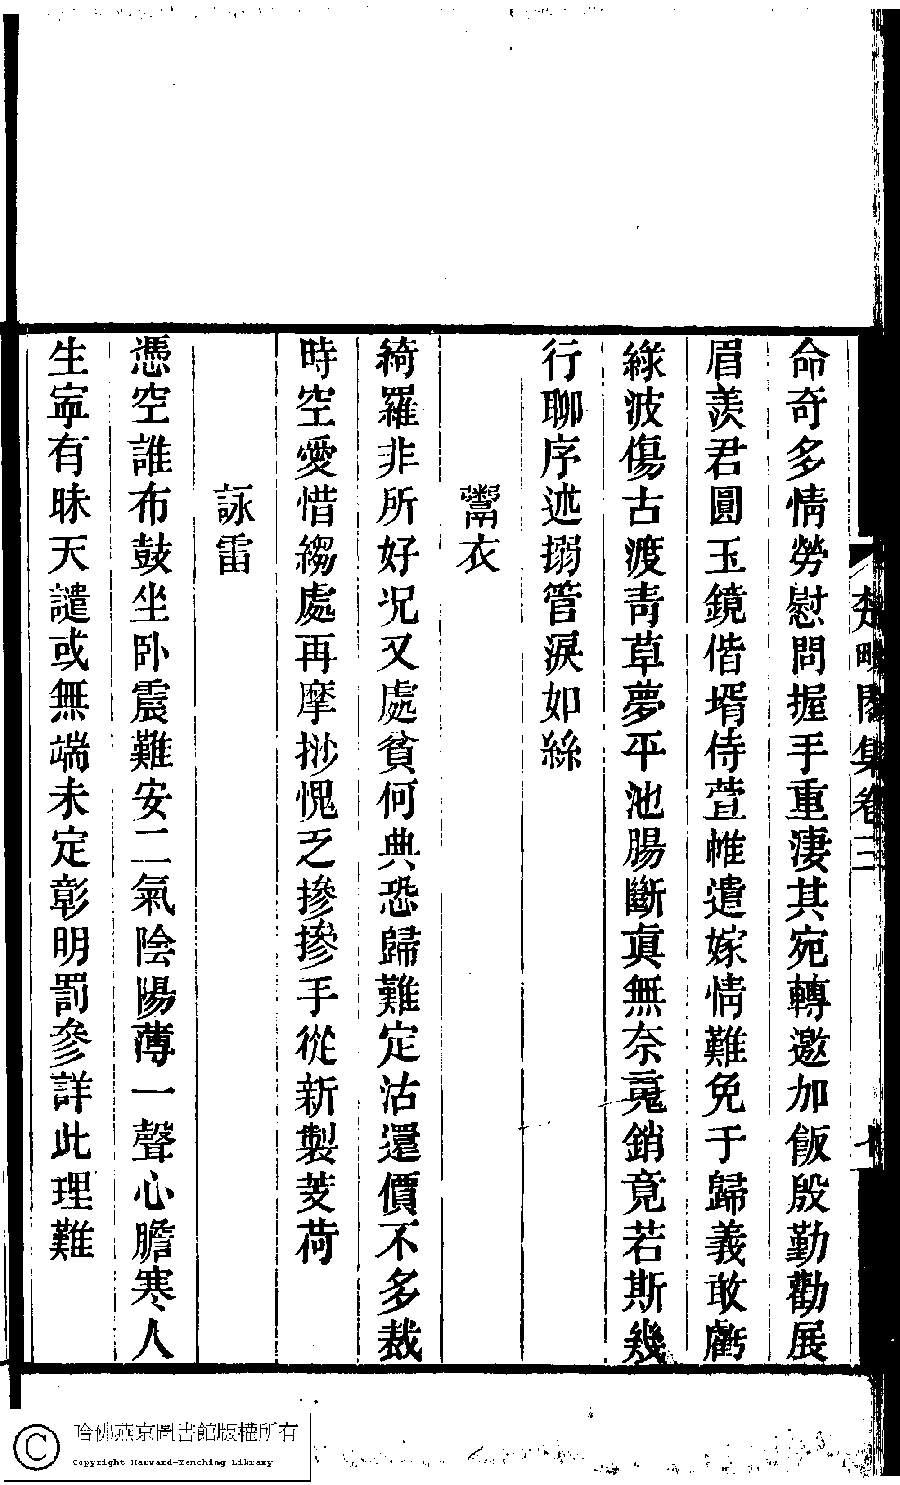 命奇多情勞慰問握手重淒其宛轉邀加飯殷勤勸展
眉羨君圓玉鏡偕壻侍萱帷遣嫁情難免于歸義敢虧
綠波傷古渡靑草夢平池腸斷眞無奈䰟銷竟若斯幾
行聊序述搦管淚如絲
鬻衣
綺羅非所好況又處貧何典恐歸難定沽還價不多裁
時空愛惜縐處再摩挱愧乏摻摻手從新製芰荷
詠雷
憑空誰布鼓坐卧震難安二氣陰陽薄一聲心膽寒人
生寍有昧天譴或無端未定彰明罰參詳此理難
閣集卷三
哈佛燕京圖書館版權所有
Copyright Harvard-Yenching Library